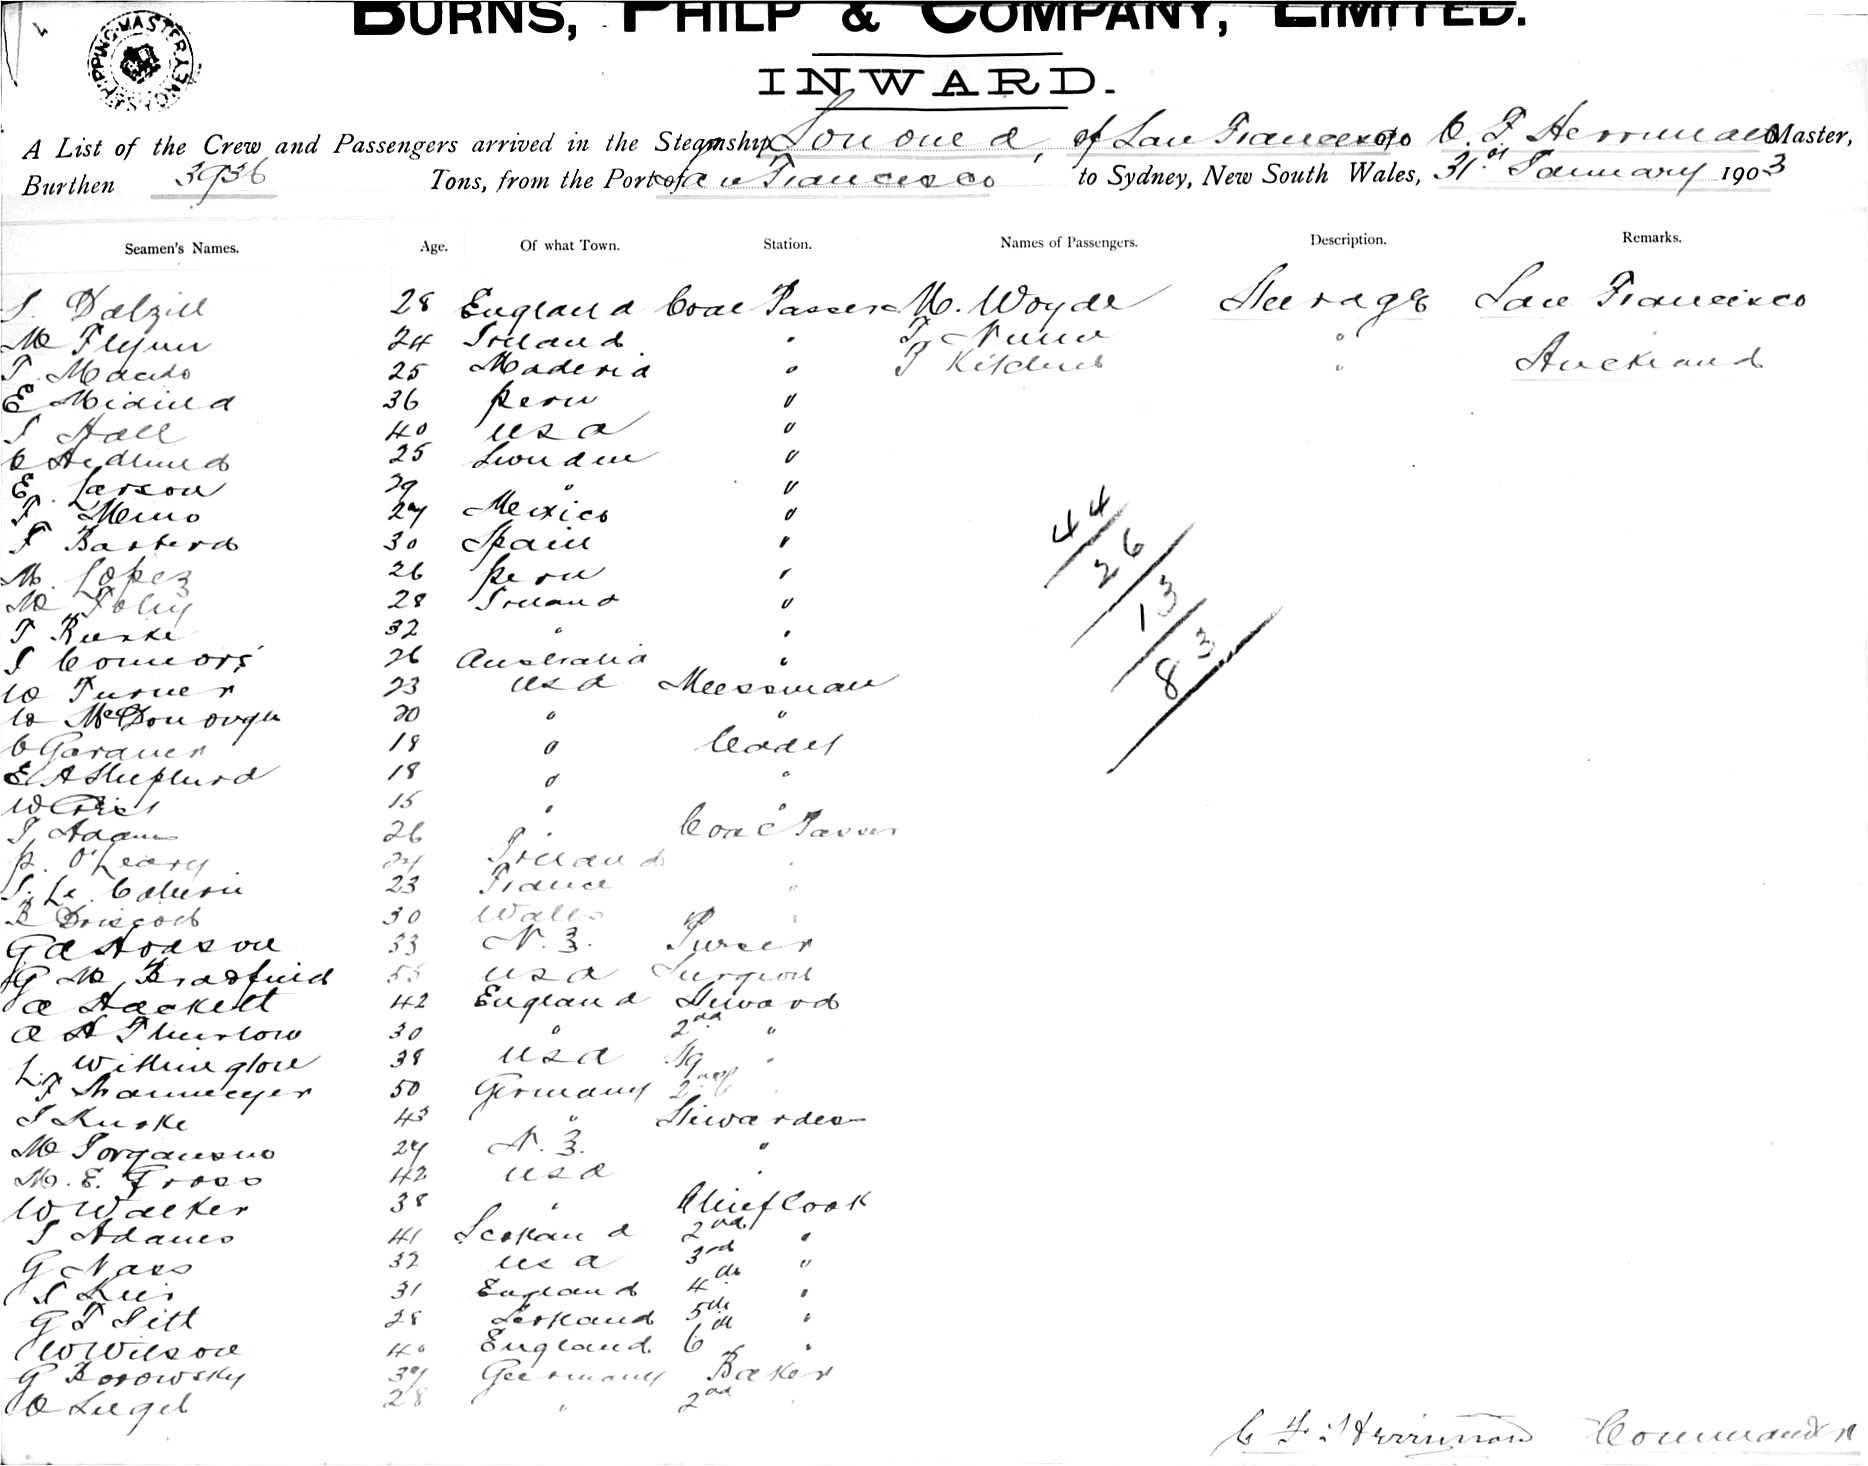 BURNS, PHILP & COMPANY, LIMITED.
INWARD.
A List of the Crew and Passengers arrived in the Steamship Sonoma, of San Francisco C. F. Herriman Master,
Burthen 3936 Tons, from the Port of San Francisco to Sydney, New South Wales, 31st January 1903
Seamen's Names. Age. Of what Town. Station. Names of Passengers. Description. Remarks.
J. Dalziell 28 England Coal Passer M. Woyde Steerage San Francisco
M Flynn 24 Ireland " "
25 Maderia " " Auckland
E 36 Peru "
J Hall 40 USA "
C Hedlund 25 "
E. Larson 29 " "
27 Mexico "
30 Spain "
M. Lopez 26 Peru "
M Foley 28 Ireland "
T 32 " "
J Connors 26 Australia "
W Turner 23 USA Messman
W McDonough 20 " "
C Gardner 18 " Cadet
E A Shepherd 18 " "
W 15 " "
J Adams 26 " Coal Passer
P. O'Leary 24 Ireland "
23 France "
Driscoll 30 Wales "
G A Hodson 33 N.Z. Purser
G M Bradfield 55 USA Surgeon
A Hackett 42 England Steward
A H Thurlow 30 " 2nd "
L. Withington 38 USA Stg "
50 Germany 2nd
43 " Stewardess
M Jorgansen 27 N.Z. "
M. E. Gross 42 USA "
W Walker 38 " Chief Cook
J Adams 41 Scotland 2nd "
G Nass 32 USA 3rd "
31 England 4th "
G T 28 Scotland 5th "
W Wilson 40 England 6th "
G Borowsky 39 Germany Baker
28 " 2nd "
44
26
13
83
C. F. Herriman Commander